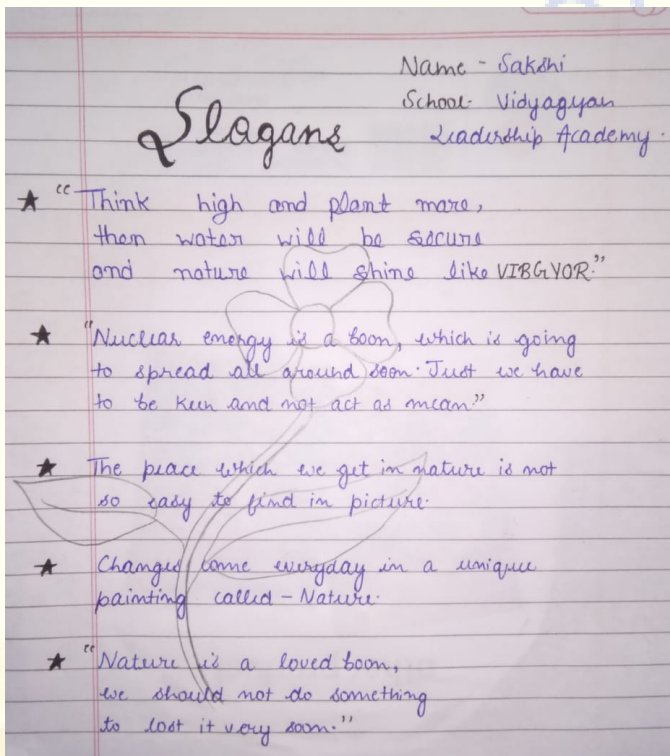 Name - Sakshi
School- Vidyagyan
Leadership Academy.
Slagans
★ "Think high and plant more,
then water will be secure
and nature will shine like VIBGYOR."
★ "Nuclear energy is a boon, which is going
to spread all around soon. Just we have
to be keen and not act as mean."
★ The peace which we get in nature is not
so easy to find in picture.
★ Changes come everyday in a unique
painting called - Nature.
★ "Nature is a loved boon,
we should not do something
to lost it very soon."